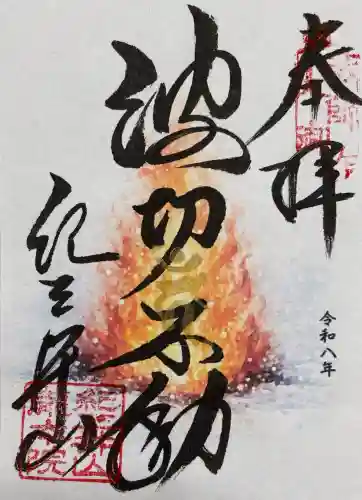 奉拝
令和八年
波切不動
紀三井山